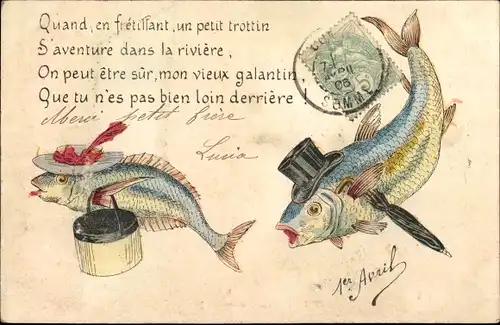 Quand, en frétillant, un petit trottin
S'aventure dans la rivière,
On peut être sûr, mon vieux galantin
Que tu n'es pas bien loin derrière !
Merci petit frère
Lucia
SOMME
1er Avril